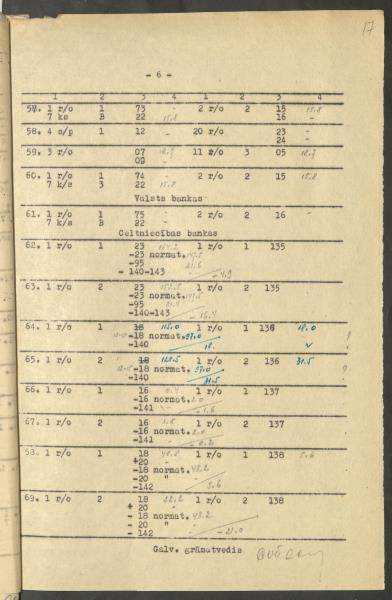 17
- 6 -
1 2 3 4 1 2 3 4
57. 1 r/o 1 73 - 2 r/o 2 15 15.8
7 ks B 22 15.8 16 -
58. 4 s/p 1 12 - 20 r/o 23 -
24 -
59. 3 r/o 07 18.7 11 r/o 3 05 18.7
09 -
60. 1 r/o 1 74 - 2 r/o 2 15 15.8
7 k/s 3 22 15.8
Valsts bankas
61. 1 r/o 1 75 - 2 r/o 2 16 -
7 k/s B 22
Celtniecības bankas
62. 1 r/o 1 23 1 r/o 1 135
-23 normat.
-95 21.6
- 140-143 -4.9
63. 1 r/o 2 23 1 r/o 2 135
-23 normat.
-95
-140-143
64. 1 r/o 1 18 115.0 1 r/o 1 136 18.0
-18 normat. 97.0
-140 18.
65. 1 r/o 2 18 128.5 1 r/o 2 136 31.5
-18 normat. 97.0
-140 31.5
66. 1 r/o 1 16 0.4 1 r/o 1 137
-16 normat. 2.0
-141 -1.6
67. 1 r/o 2 16 1.8 1 r/o 2 137
-16 normat. 2.0
-141 -0.2
58. 1 r/o 1 18 48.8 1 r/o 1 138 5.6
+20 -
-18 normat. 43.2
-20 "
-142 5.6
69. 1 r/o 2 18 22.2 1 r/o 2 138
+ 20
- 18 normat. 43.2
- 20 "
- 142 -21.0
Galv. grāmatvedis